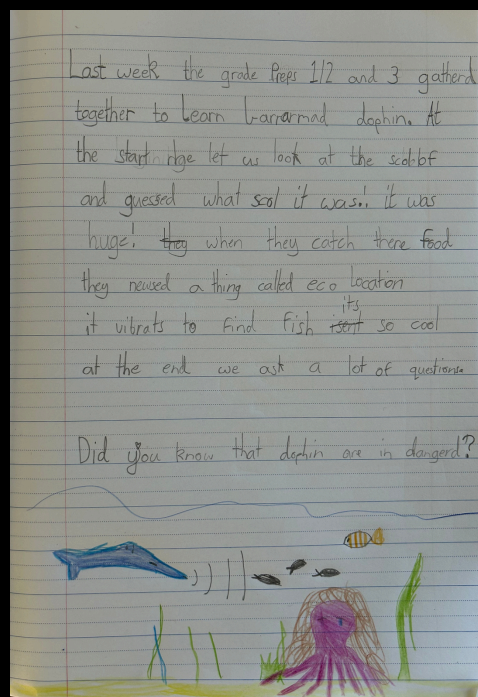 Last week the grade Preps 1/2 and 3 gatherd
together to learn barrarmad dophin. At
the start rdge let us look at the scol of
and guessed what scol it was!. it was
huge! they when they catch there food
they neused a thing called eco Location
it vibrats to find fish isent its so cool
at the end we ask a lot of questions.
Did you know that dophin are in dangerd?